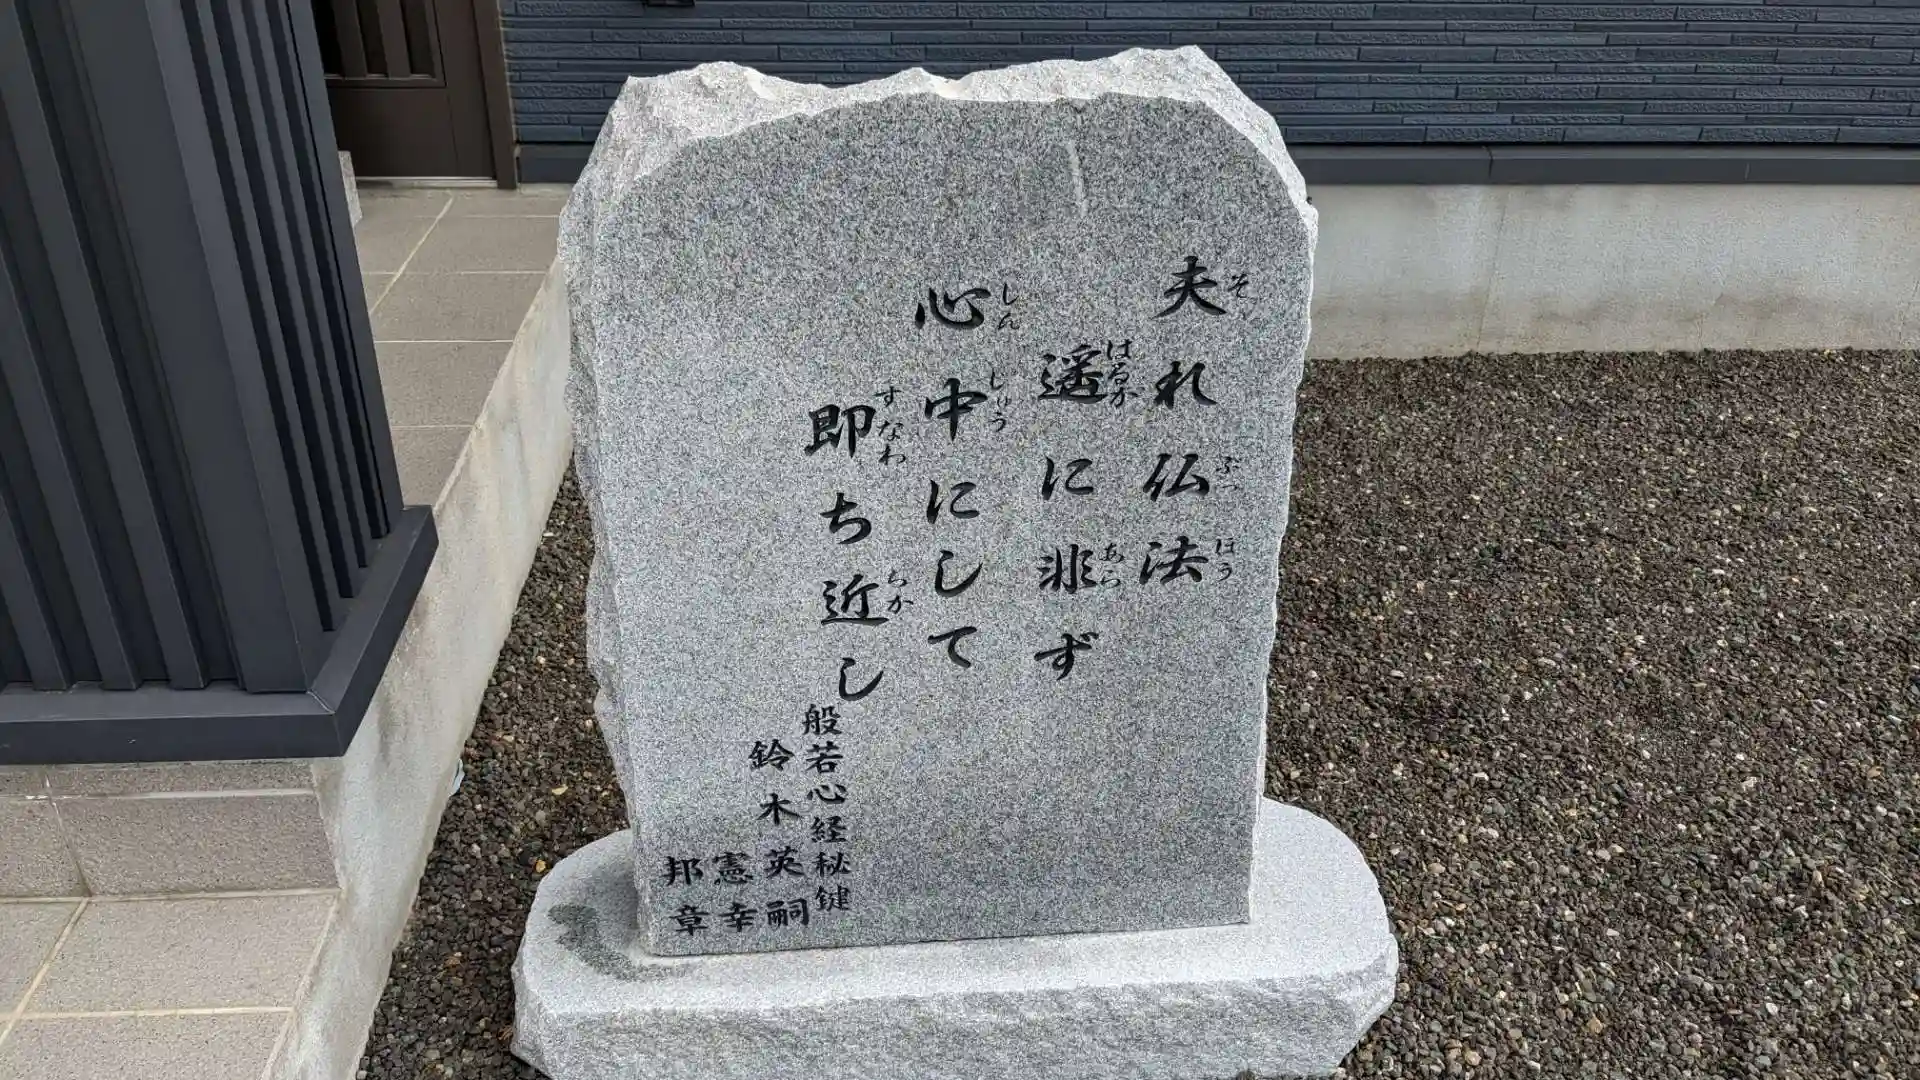 夫れ仏法
そ
ぶつ
ほう
遥に非ず
はるか
あら
心中にして
しん
しゅう
即ち近し
すなわ
ちか
般若心経秘鍵
鈴木英嗣
憲幸
邦章